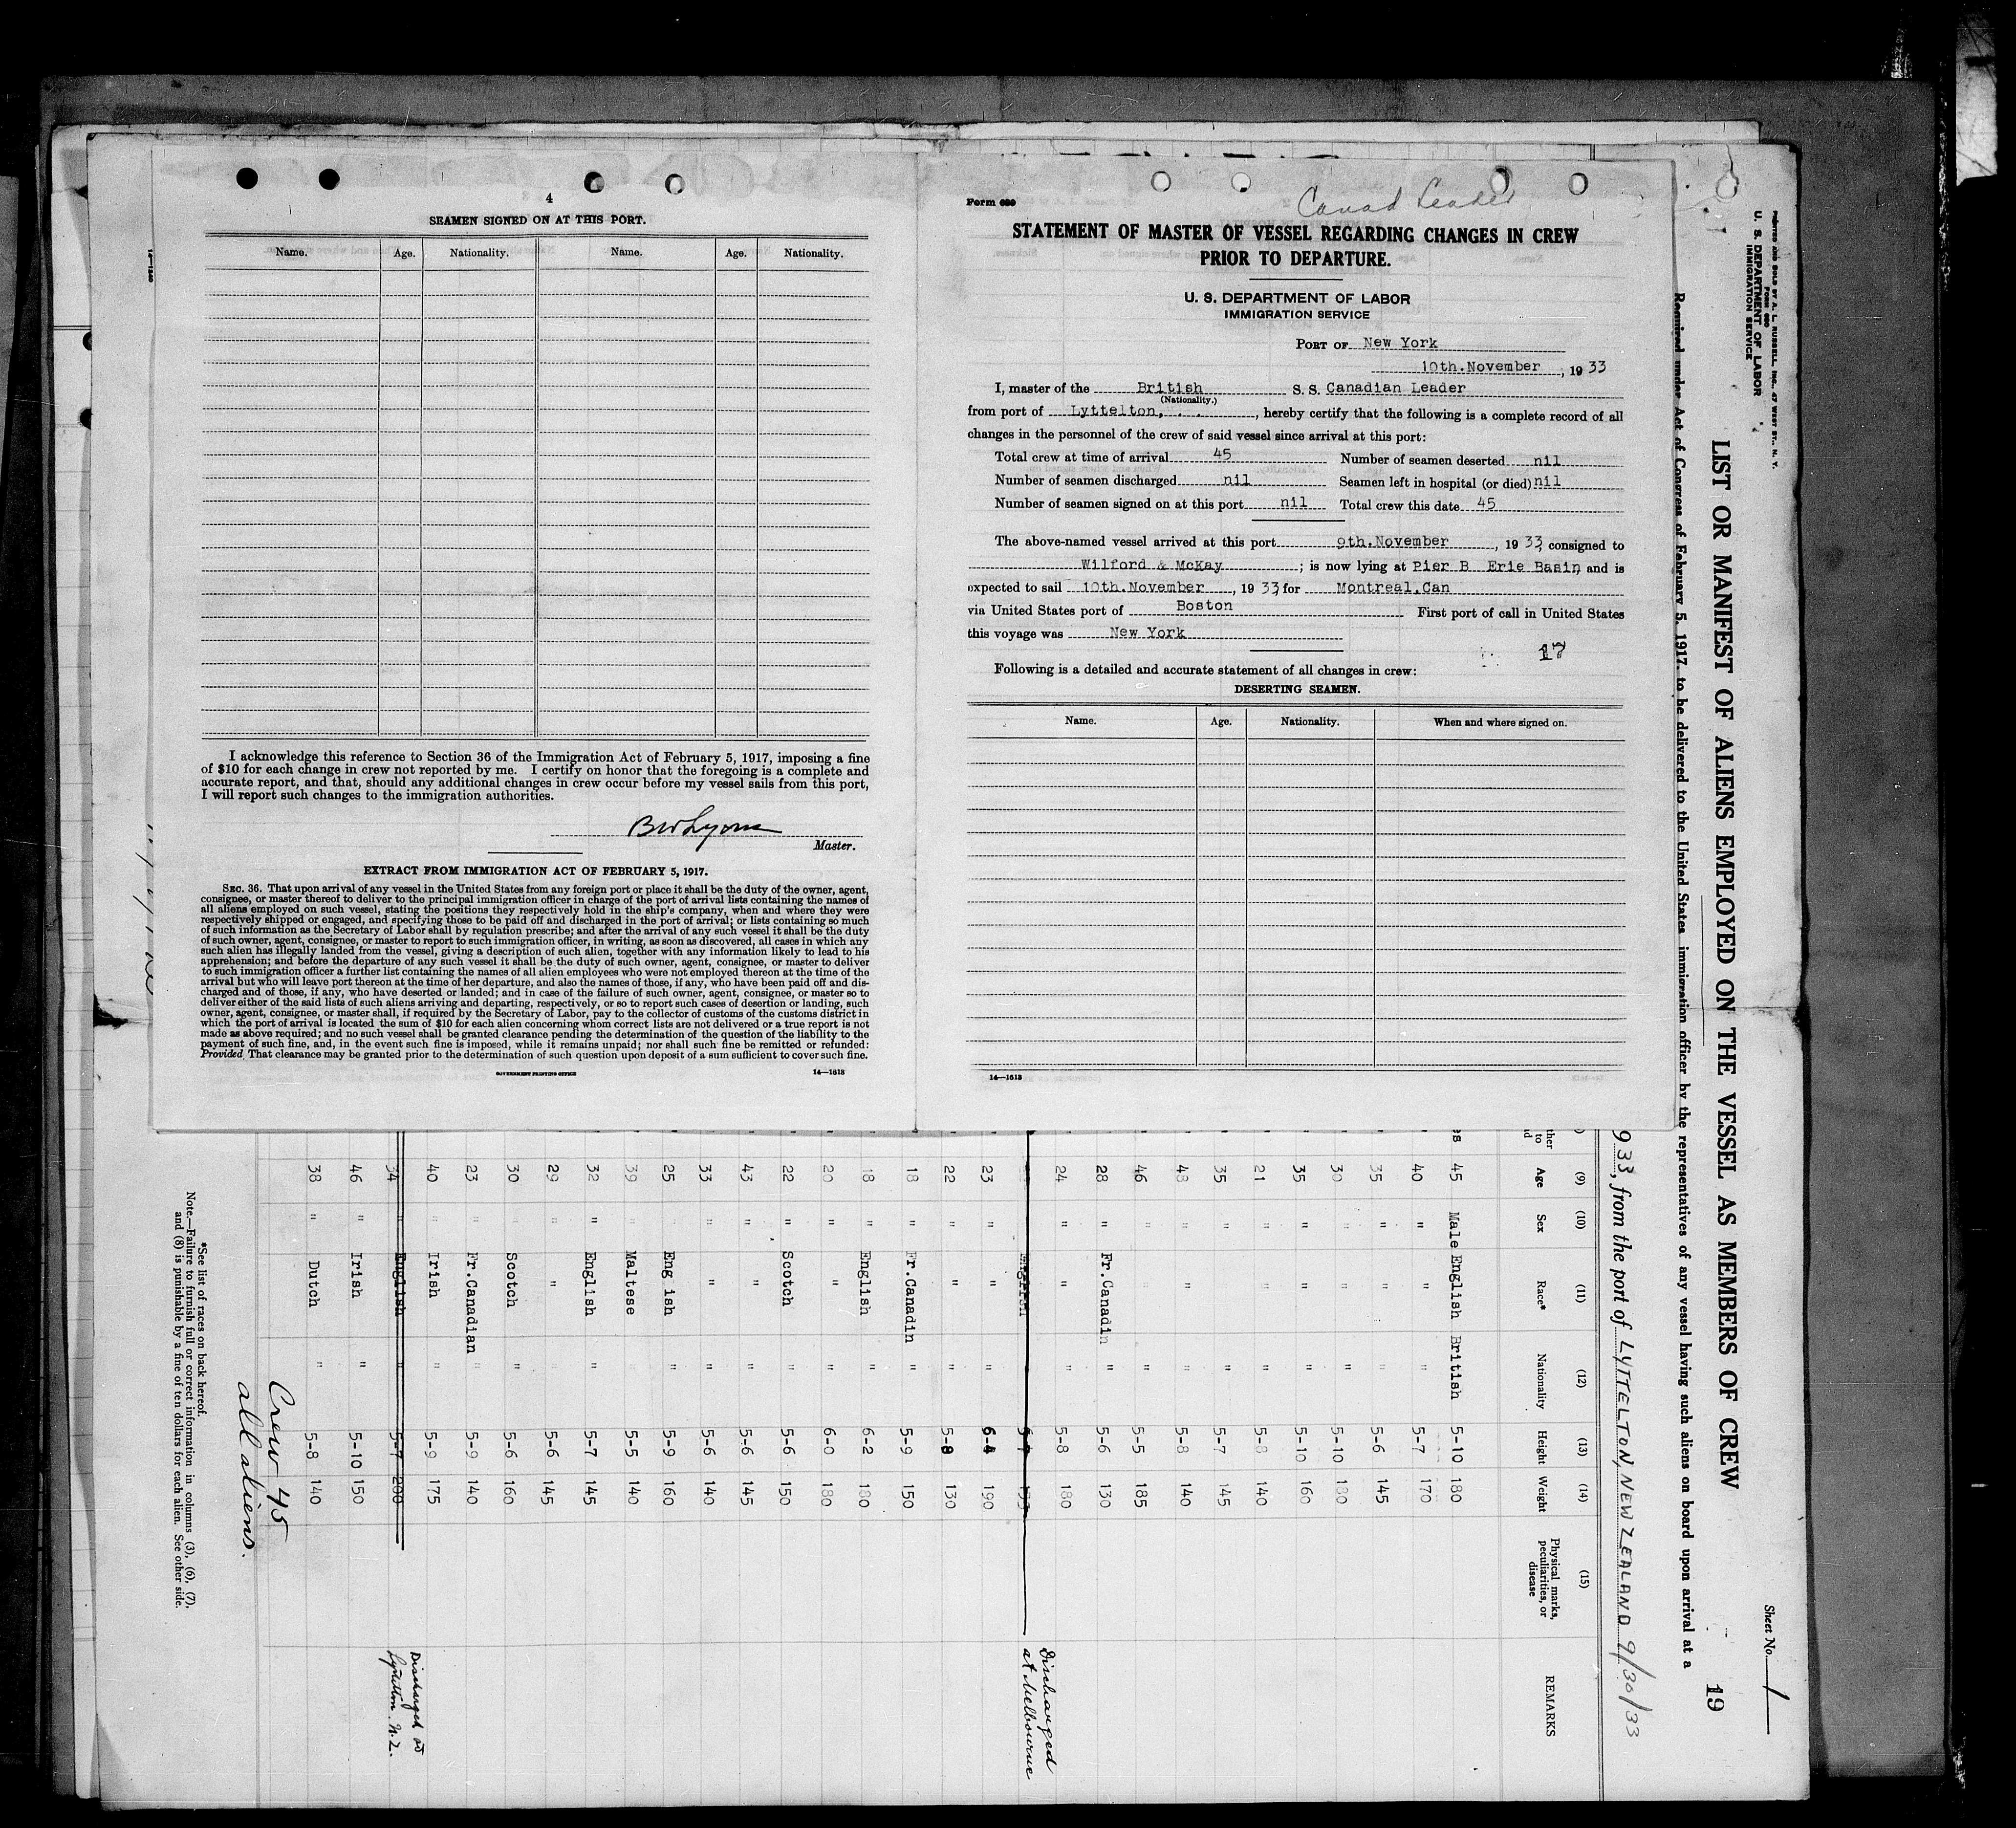 4
SEAMEN SIGNED ON AT THIS PORT.
Name. Age. Nationality. Name. Age. Nationality.
I acknowledge this reference to Section 36 of the Immigration Act of February 5, 1917, imposing a fine
of $10 for each change in crew not reported by me. I certify on honor that the foregoing is a complete and
accurate report, and that, should any additional changes in crew occur before my vessel sails from this port,
I will report such changes to the immigration authorities.
BWLyons
Master.
EXTRACT FROM IMMIGRATION ACT OF FEBRUARY 5, 1917.
SEC. 36. That upon arrival of any vessel in the United States from any foreign port or place it shall be the duty of the owner, agent,
consignee, or master thereof to deliver to the principal immigration officer in charge of the port of arrival lists containing the names of
all aliens employed on such vessel, stating the positions they respectively hold in the ship's company, when and where they were
respectively shipped or engaged, and specifying those to be paid off and discharged in the port of arrival; or lists containing so much
of such information as the Secretary of Labor shall by regulation prescribe; and after the arrival of any such vessel it shall be the duty
of such owner, agent, consignee, or master to report to such immigration officer, in writing, as soon as discovered, all cases in which any
such alien has illegally landed from the vessel, giving a description of such alien, together with any information likely to lead to his
apprehension; and before the departure of any such vessel it shall be the duty of such owner, agent, consignee, or master to deliver
to such immigration officer a further list containing the names of all alien employees who were not employed thereon at the time of the
arrival but who will leave port thereon at the time of her departure, and also the names of those, if any, who have been paid off and dis-
charged and of those, if any, who have deserted or landed; and in case of the failure of such owner, agent, consignee, or master so to
deliver either of the said lists of such aliens arriving and departing, respectively, or so to report such cases of desertion or landing, such
owner, agent, consignee, or master shall, if required by the Secretary of Labor, pay to the collector of customs of the customs district in
which the port of arrival is located the sum of $10 for each alien concerning whom correct lists are not delivered or a true report is not
made as above required; and no such vessel shall be granted clearance pending the determination of the question of the liability to the
payment of such fine, and, in the event such fine is imposed, while it remains unpaid; nor shall such fine be remitted or refunded:
Provided That clearance may be granted prior to the determination of such question upon deposit of a sum sufficient to cover such fine.
GOVERNMENT PRINTING OFFICE 14—1613
Form 689
Canad Leader
STATEMENT OF MASTER OF VESSEL REGARDING CHANGES IN CREW
PRIOR TO DEPARTURE.
U. S. DEPARTMENT OF LABOR
IMMIGRATION SERVICE
PORT OF New York
10th.November, 1933
I, master of the British S. S. Canadian Leader
(Nationality.)
from port of Lyttelton, . . , hereby certify that the following is a complete record of all
changes in the personnel of the crew of said vessel since arrival at this port:
Total crew at time of arrival 45 Number of seamen deserted nil
Number of seamen discharged nil Seamen left in hospital (or died) nil
Number of seamen signed on at this port nil Total crew this date 45
The above-named vessel arrived at this port 9th.November, 1933, consigned to
Wilford & McKay; is now lying at Pier B Erie Basin, and is
expected to sail 10th.November, 1933, for Montreal.Can
via United States port of Boston First port of call in United States
this voyage was New York
17
Following is a detailed and accurate statement of all changes in crew:
DESERTING SEAMEN.
Name. Age. Nationality. When and where signed on.
14—1613
PRINTED AND SOLD BY A. L. RUSSELL, INC., 47 WEST ST., N. Y.
FORM 689
U. S. DEPARTMENT OF LABOR
IMMIGRATION SERVICE
Sheet No. 1
19
LIST OR MANIFEST OF ALIENS EMPLOYED ON THE VESSEL AS MEMBERS OF CREW
Required under Act of Congress of February 5, 1917, to be delivered to the United States immigration officer by the representatives of any vessel having such aliens on board upon arrival at a
933, from the port of LYTTELTON, NEW ZEALAND 9/30/33
(9) (10) (11) (12) (13) (14) (15)
Age Sex Race* Nationality Height Weight Physical marks, peculiarities, or disease REMARKS
45 Male English British 5-10 180
40 " " " 5-7 170
35 " " 5-6 145
30 " " " 5-10 180
35 " " " 5-10 160
21 " " " 5-8 140
35 " " 5-7 145
48 " " " 5-8 140
46 " " 5-5 185
28 " Fr.Canadin " 5-6 130
24 " " " 5-8 180
English 5-7 Discharged at Melbourne
23 " " " 6-4 190
22 " " " 5-8 130
18 " Fr.Canadin " 5-9 150
18 " English " 6-2 180
20 " " " 6-0 180
22 " Scotch " 5-6 150
43 " " " 5-6 145
33 " " " 5-6 140
25 " Eng ish " 5-9 160
39 " Maltese " 5-5 140
32 " English " 5-7 145
29 " " " 5-6 145
30 " Scotch " 5-6 160
23 " Fr.Canadian " 5-9 140
40 " Irish " 5-9 175
34 " English " 5-7 200 Discharged at Lyttelton. N.Z.
46 " Irish " 5-10 150
38 " Dutch " 5-8 140
Crew 45
all aliens.
*See list of races on back hereof.
Note.—Failure to furnish full or correct information in columns (3), (6), (7),
and (8) is punishable by a fine of ten dollars for each alien. See other side.